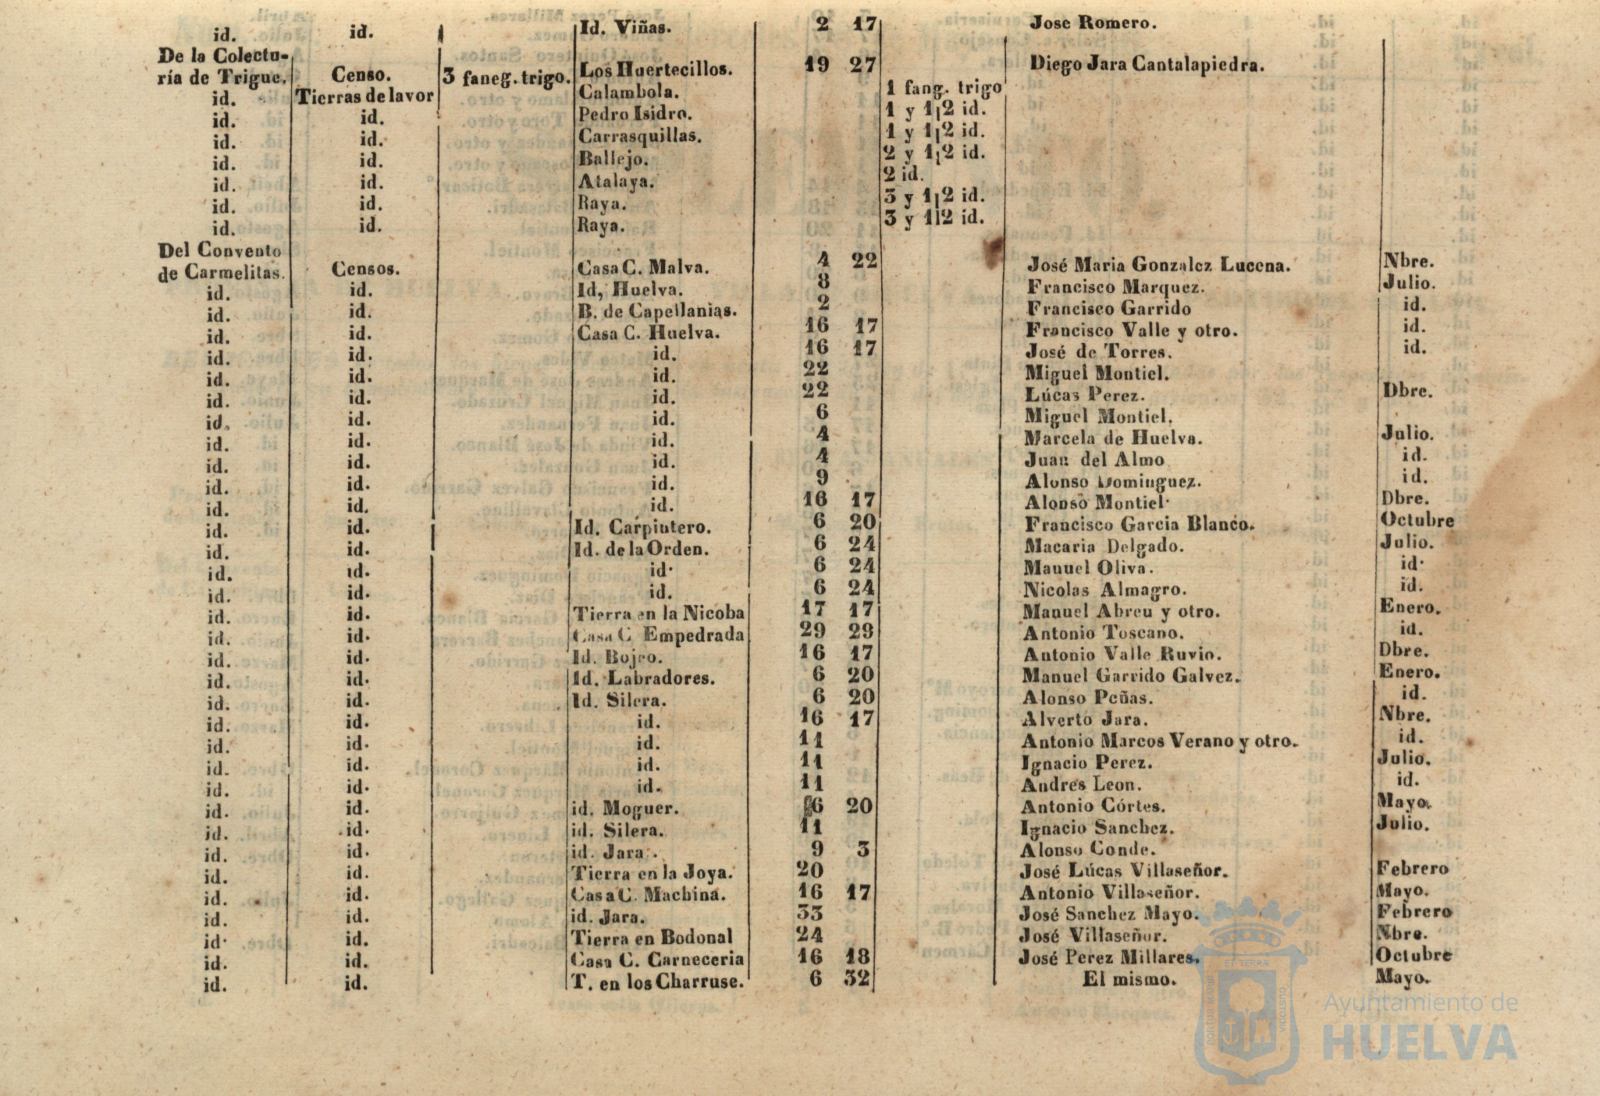 id. id. Id. Viñas. 2 17 Jose Romero.
De la Colectu-
ría de Trigue. Censo. 3 faneg. trigo. Los Huertecillos. 19 27 Diego Jara Cantalapiedra.
id. Tierras de lavor Calambola. 1 fang. trigo
id. id. Pedro Isidro. 1 y 1|2 id.
id. id. Carrasquillas. 1 y 1|2 id.
id. id. Ballejo. 2 y 1|2 id.
id. id. Atalaya. 2 id.
id. id. Raya. 3 y 1|2 id.
id. id. Raya. 3 y 1|2 id.
Del Convento
de Carmelitas. Censos. Casa C. Malva. 4 22 José Maria Gonzalez Lucena. Nbre.
id. id. Id, Huelva. 8 Francisco Marquez. Julio.
id. id. B. de Capellanias. 2 Francisco Garrido id.
id. id. Casa C. Huelva. 16 17 Francisco Valle y otro. id.
id. id. id. 16 17 José de Torres. id.
id. id. id. 22 Miguel Montiel.
id. id. id. 22 Lúcas Perez. Dbre.
id. id. id. 6 Miguel Montiel.
id. id. id. 4 Marcela de Huelva. Julio.
id. id. id. 4 Juan del Almo id.
id. id. id. 9 Alonso Dominguez. id.
id. id. id. 16 17 Alonso Montiel. Dbre.
id. id. Id. Carpintero. 6 20 Francisco Garcia Blanco. Octubre
id. id. Id. de la Orden. 6 24 Macaria Delgado. Julio.
id. id. id. 6 24 Manuel Oliva. id.
id. id. id. 6 24 Nicolas Almagro. id.
id. id. Tierra en la Nicoba 17 17 Manuel Abreu y otro. Enero.
id. id. Casa C. Empedrada 29 29 Antonio Toscano. id.
id. id. Id. Bojeo. 16 17 Antonio Valle Ruvio. Dbre.
id. id. Id. Labradores. 6 20 Manuel Garrido Galvez. Enero.
id. id. Id. Silera. 6 20 Alonso Peñas. id.
id. id. id. 16 17 Alverto Jara. Nbre.
id. id. id. 11 Antonio Marcos Verano y otro. id.
id. id. id. 11 Ignacio Perez. Julio.
id. id. id. 11 Andres Leon. id.
id. id. id. Moguer. 6 20 Antonio Córtes. Mayo.
id. id. id. Silera. 11 Ignacio Sanchez. Julio.
id. id. id. Jara. 9 3 Alonso Conde.
id. id. Tierra en la Joya. 20 José Lúcas Villaseñor. Febrero
id. id. Casa C. Machina. 16 17 Antonio Villaseñor. Mayo.
id. id. id. Jara. 33 José Sanchez Mayo. Febrero
id. id. Tierra en Bodonal 24 José Villaseñor. Nbre.
id. id. Casa C. Carneceria 16 18 José Perez Millares. Octubre
id. id. T. en los Charruse. 6 32 El mismo. Mayo.
Ayuntamiento de
HUELVA